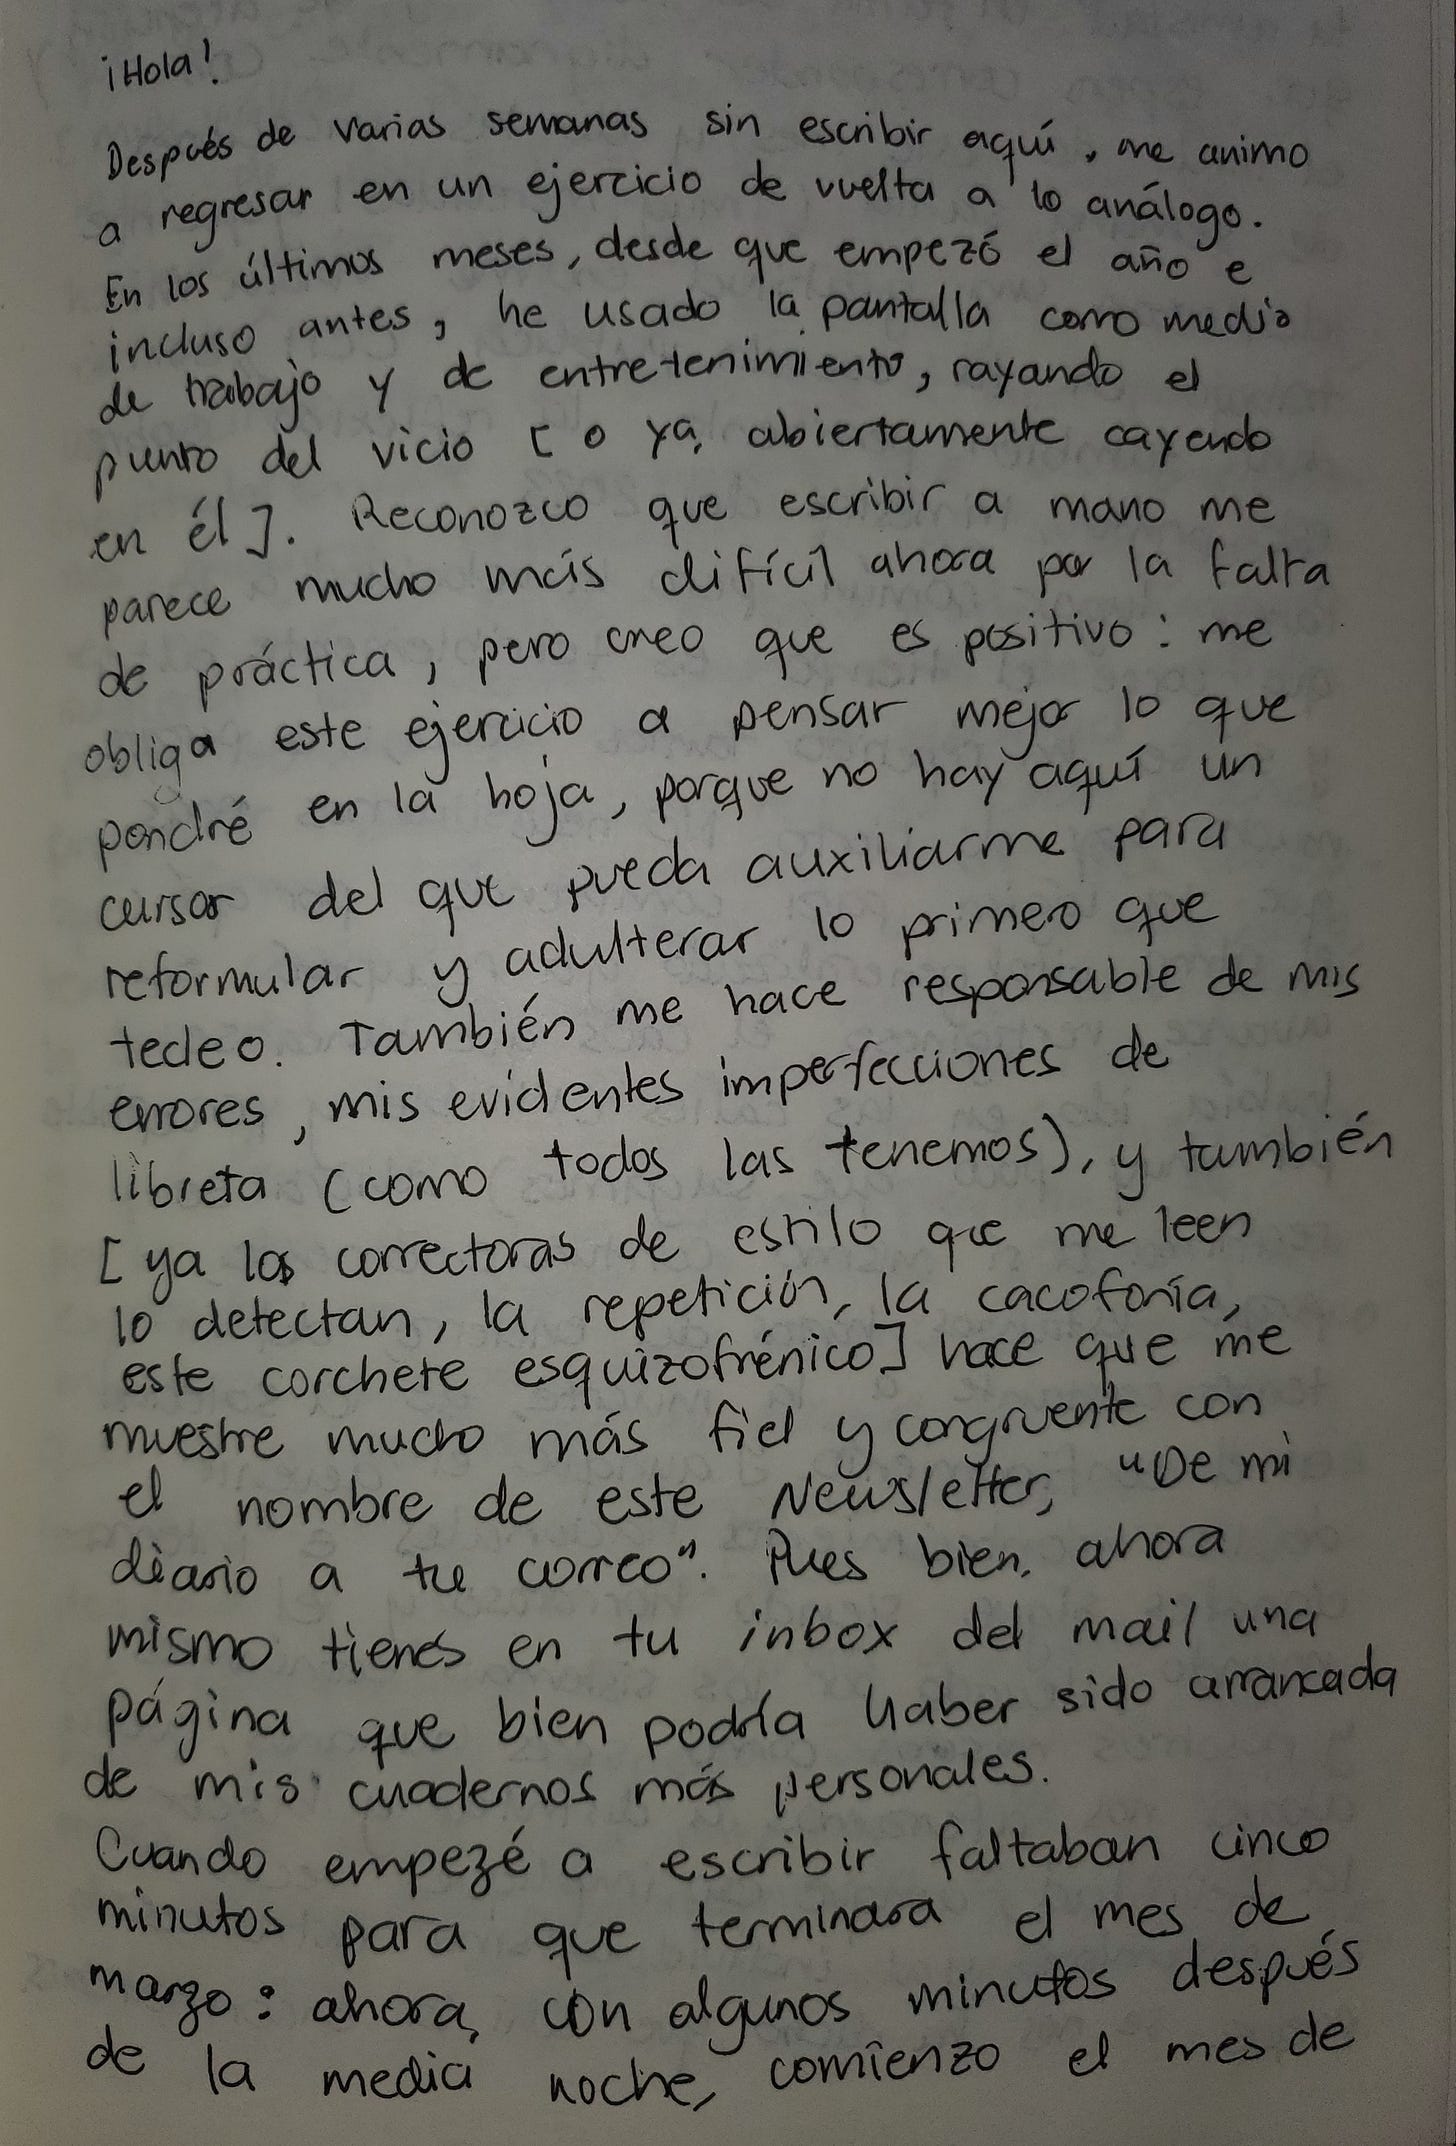 ¡Hola!
Después de varias semanas sin escribir aquí, me animo
a regresar en un ejercicio de vuelta a lo análogo.
En los últimos meses, desde que empezó el año e
incluso antes, he usado la pantalla como medio
de trabajo y de entretenimiento, rayando el
punto del vicio [o ya, abiertamente cayendo
en él]. Reconozco que escribir a mano me
parece mucho más difícil ahora por la falta
de práctica, pero creo que es positivo: me
obliga este ejercicio a pensar mejor lo que
pondré en la hoja, porque no hay aquí un
cursor del que pueda auxiliarme para
reformular y adulterar lo primero que
tecleo. También me hace responsable de mis
errores, mis evidentes imperfecciones de
libreta (como todos las tenemos), y también
[ya las correctoras de estilo que me leen
lo detectan, la repetición, la cacofonía,
este corchete esquizofrénico] hace que me
muestre mucho más fiel y congruente con
el nombre de este Newsletter, "De mi
diario a tu correo". Pues bien, ahora
mismo tienes en tu inbox del mail una
página que bien podría haber sido arrancada
de mis cuadernos más personales.
Cuando empezé a escribir faltaban cinco
minutos para que terminara el mes de
marzo: ahora, con algunos minutos después
de la media noche, comienzo el mes de